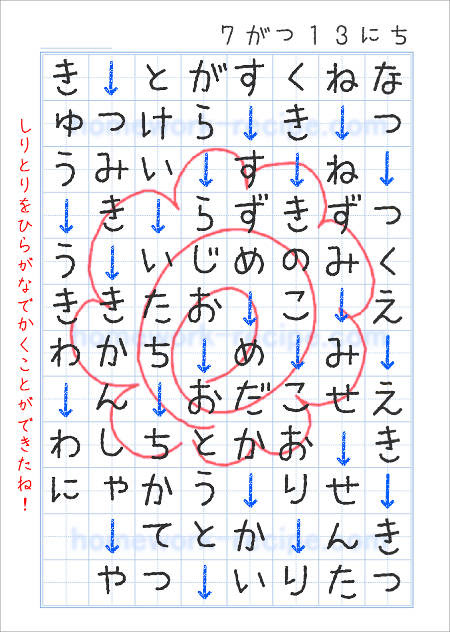 7がつ13にち
なつ↓つくえ↓えき↓きつ
ね↓ねずみ↓みせ↓せんた
くき↓きのこ↓こおり↓り
す↓すずめ↓めだか↓かい
がら↓らじお↓おとうと↓
とけい↓いたち↓ちかてつ
↓つみき↓きかんしゃ↓や
きゅう↓うきわ↓わに
しりとりをひらがなでかくことができたね！
homework-recipe.com
homework-recipe.com
homework-recipe.com